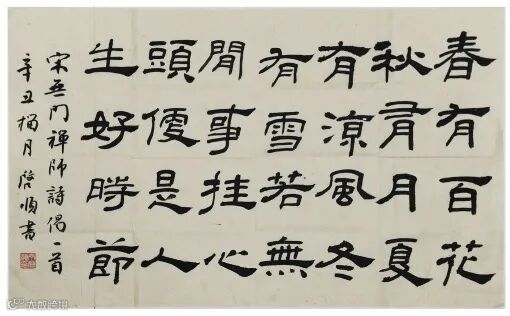 春有百花
秋有月夏
有涼風冬
有雪若無
閒事挂心
頭便是人
生好時節
宋無門禪師詩偈一首
辛丑月啓順書